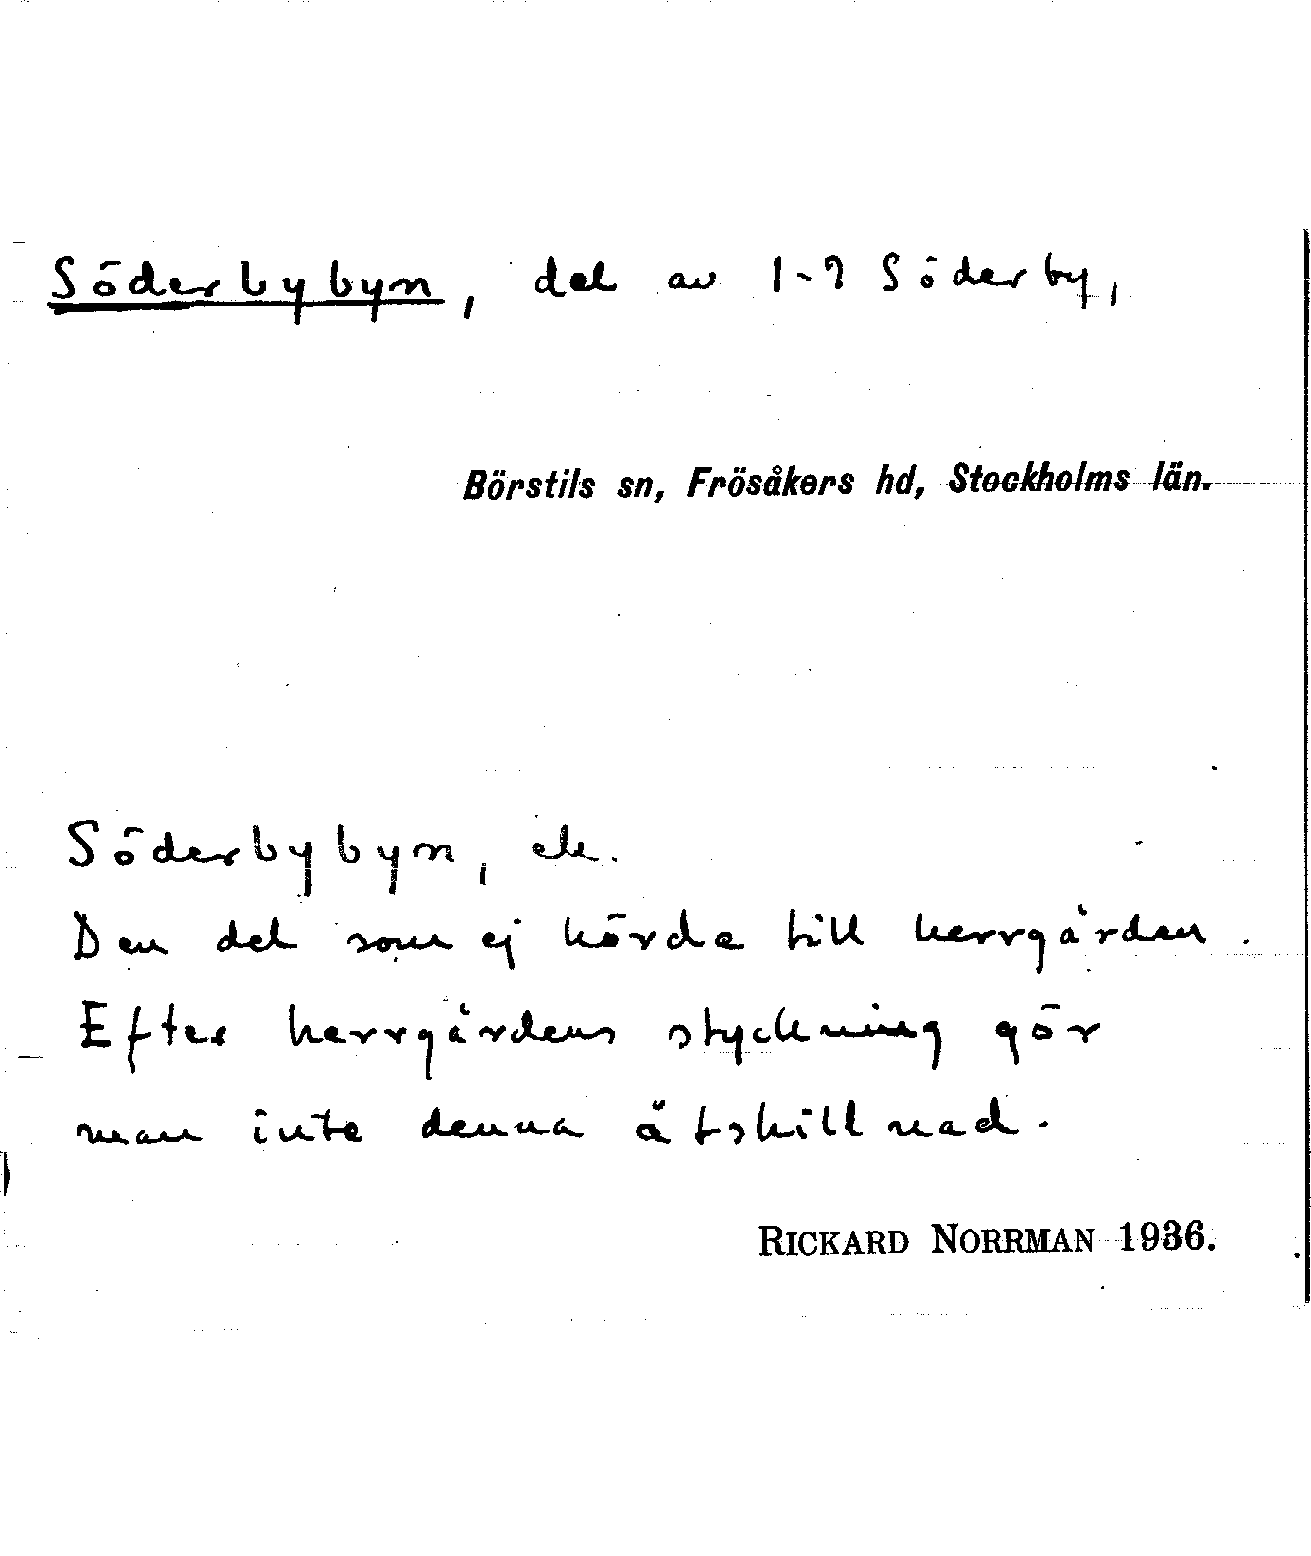 Söderbybyn, del av 1-7 Söderby,
Börstils sn, Frösåkers hd, Stockholms län.
Söderbybyn, ek.
Den del som ej hörde till herrgården.
Efter herrgårdens styckning gör
man inte denna åtskillnad.
RICKARD NORRMAN 1936.